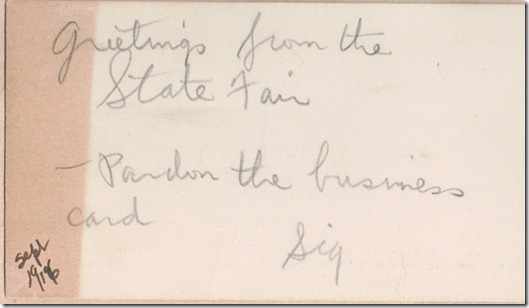 Greetings from the
State Fair
- Pardon the business
card
Sig
Sept